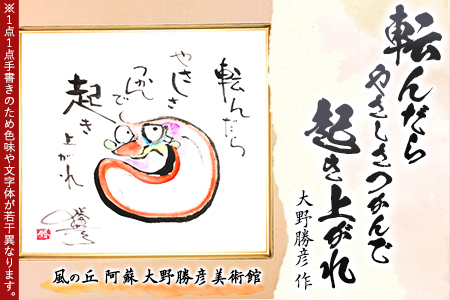 転んだら
やさしさつかんで
起き上がれ
大野勝彦 作
転んだら
やさしさ
つかんで
起き
上がれ
風の丘 阿蘇 大野勝彦美術館
※1点1点手書きのため色味や文字体が若干異なります。